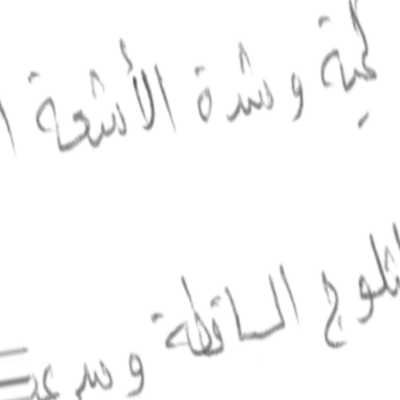 كمية وشدة الأشعة ا
لثلوج الساقطة وسرعـ